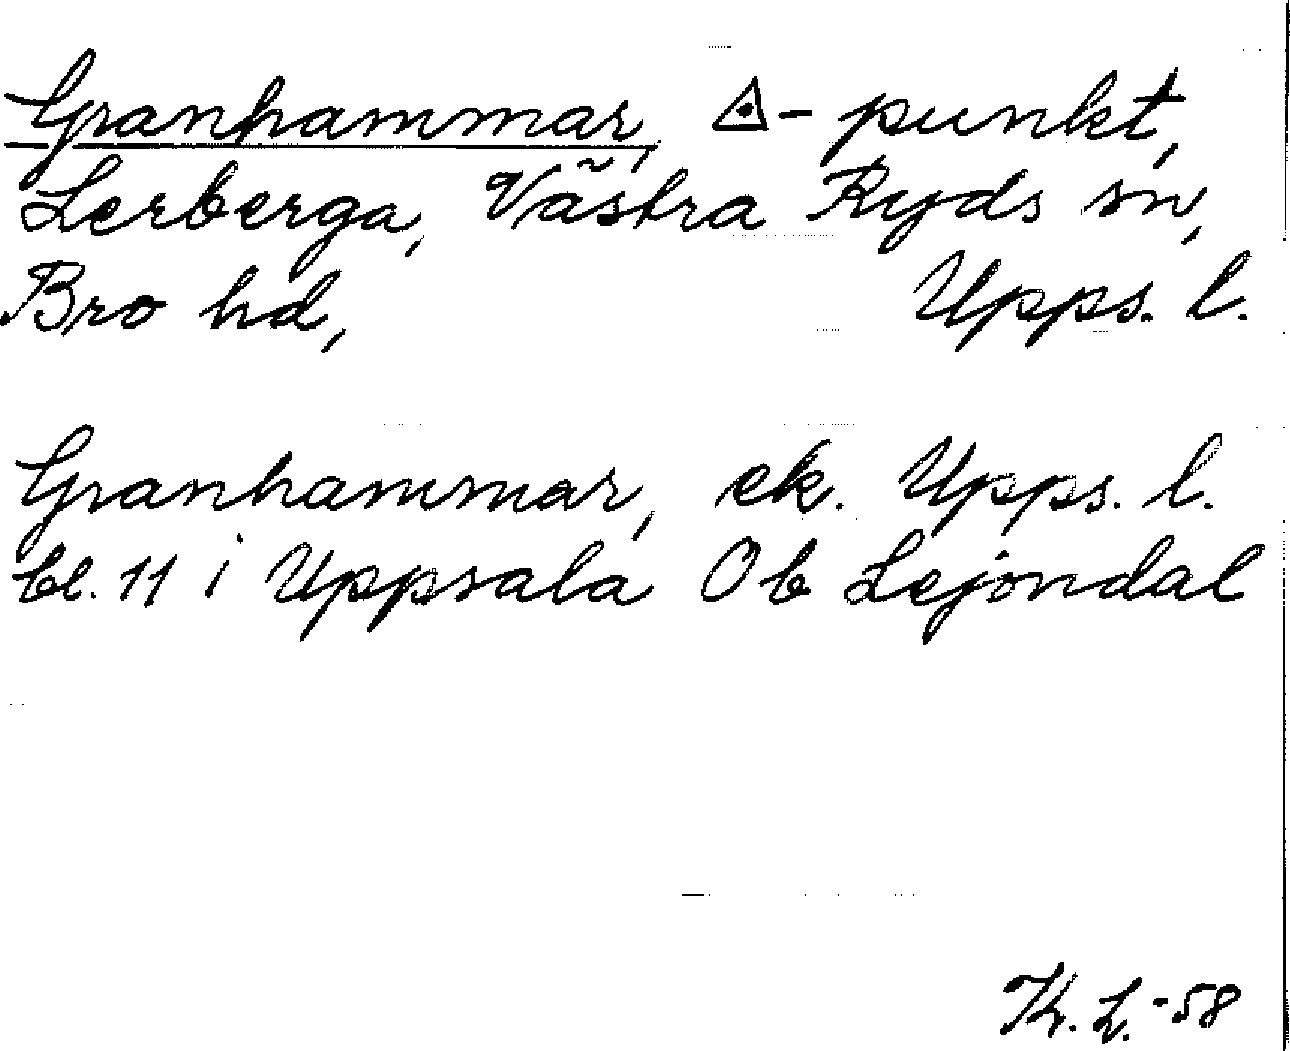 Granhammar, △-punkt,
Lerberga, Västra Ryds sn,
Bro hd, Upps. l.
Granhammar, ek. Upps. l.
bl. 11 i Uppsala Ob Lejondal
K. L. -58